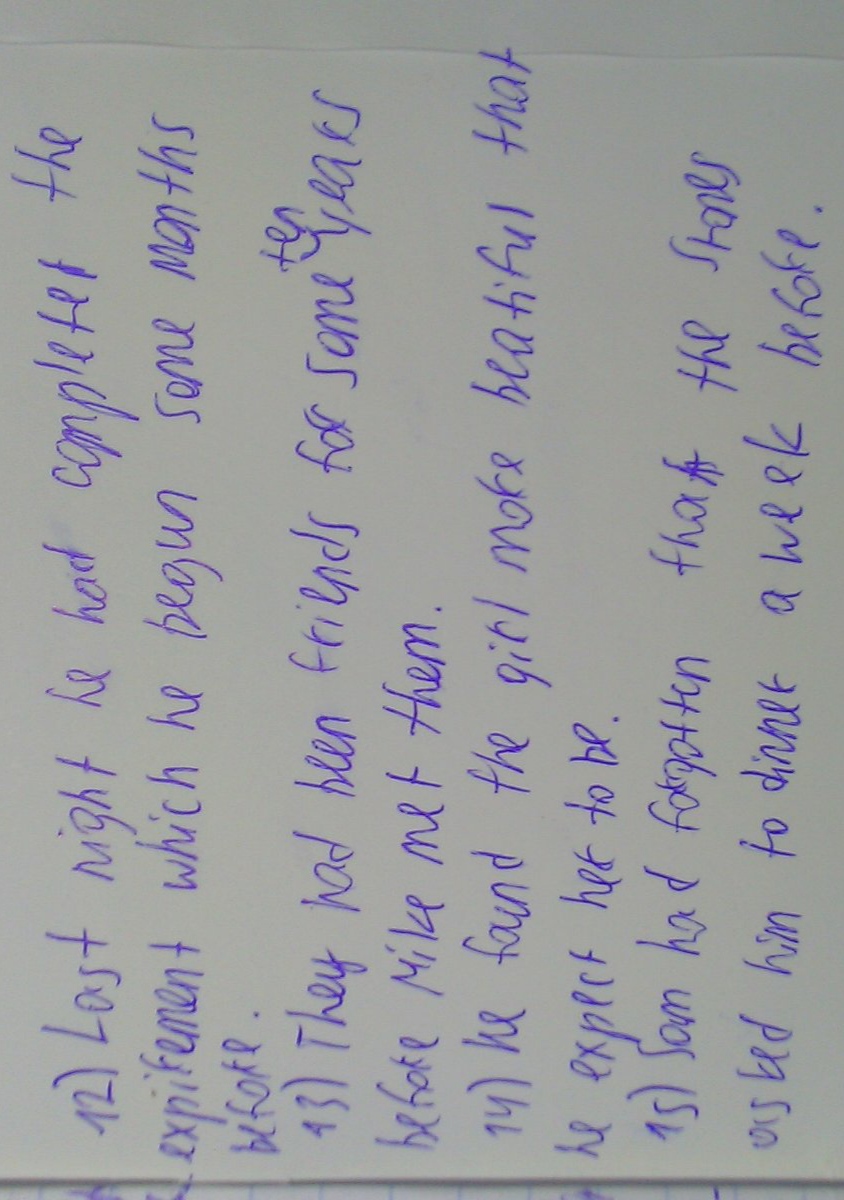 12) Last night he had completet the
expirement which he begun some months
before.
13) They had been friends for some ten years
before Mike met them.
14) he found the girl more beatiful that
he expect her to be.
15) Sam had forgotten that the Stones
asked him to dinner a week before.